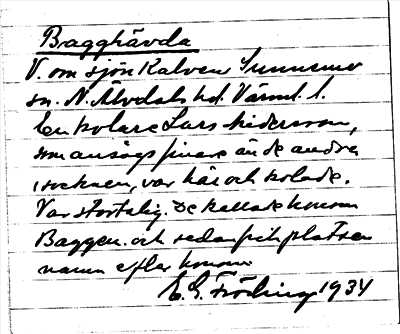 Bagghävda
V. om sjön Kalven Sunnemo
sn. N. Älvdals hd. Värml. l.
En kolare Lars Andersson,
som ansågs finare än de andra
i socknen, var här och kolade.
Var stortalig. De kallade honom
Baggen och sedan fick platsen
namn efter honom
E. G. Fröding 1934